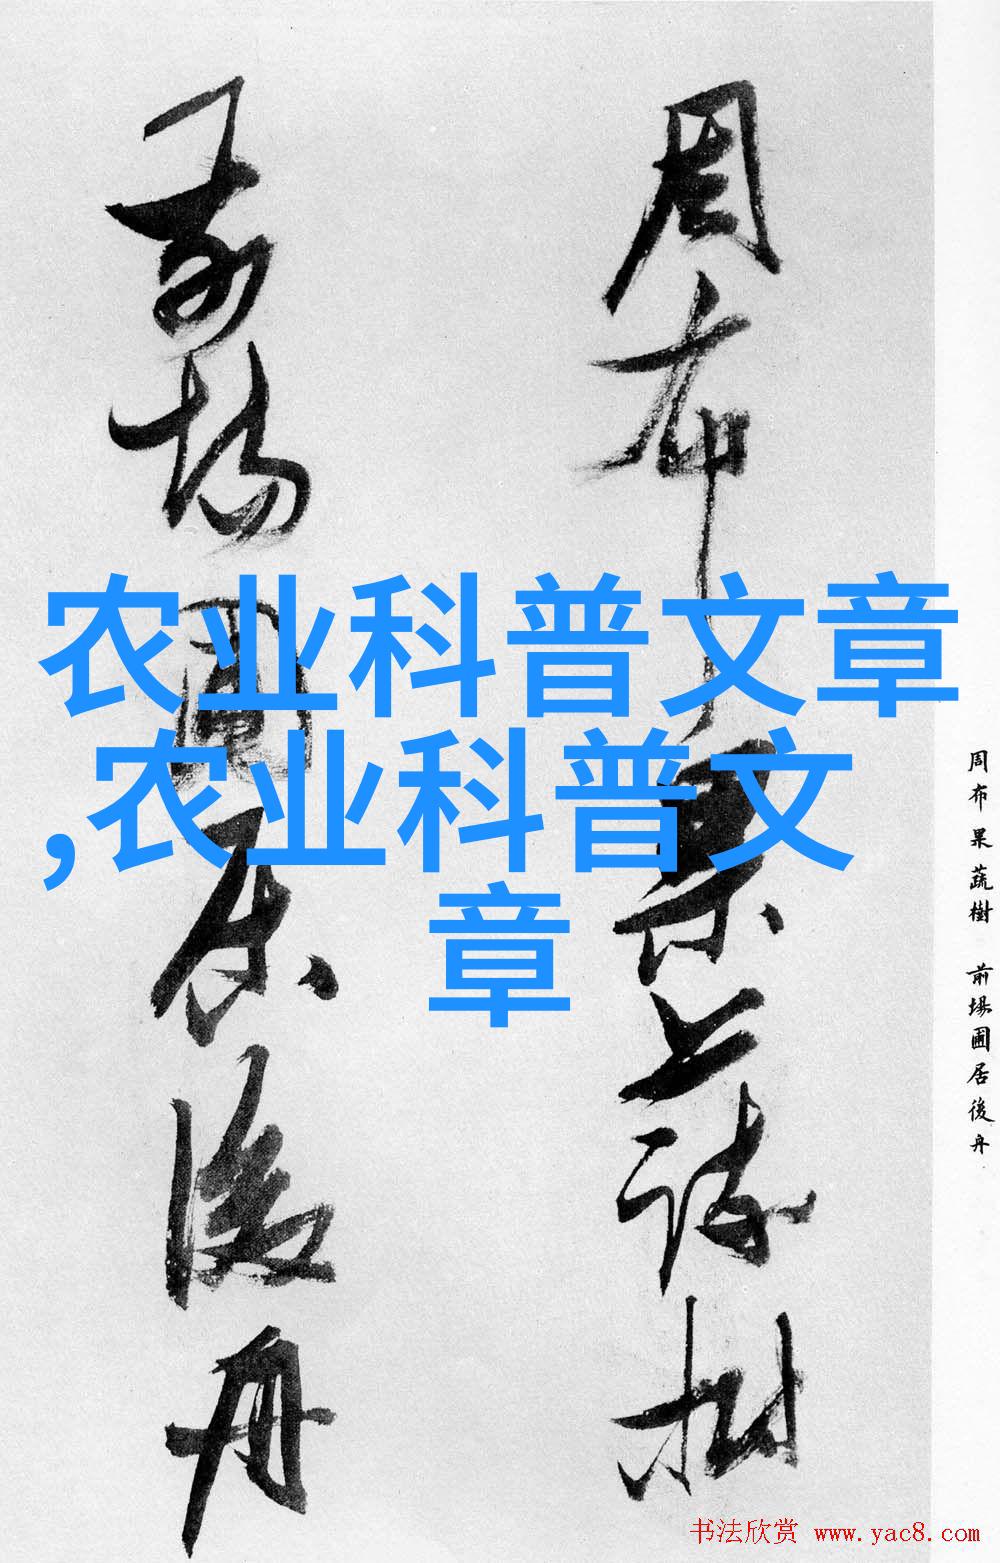 周布果蔬樹
前場圃居後舟
農业科普文章
,农业科普文
章
周布果蔬樹 前場圃居後舟
书法欣赏 www.yac8.com